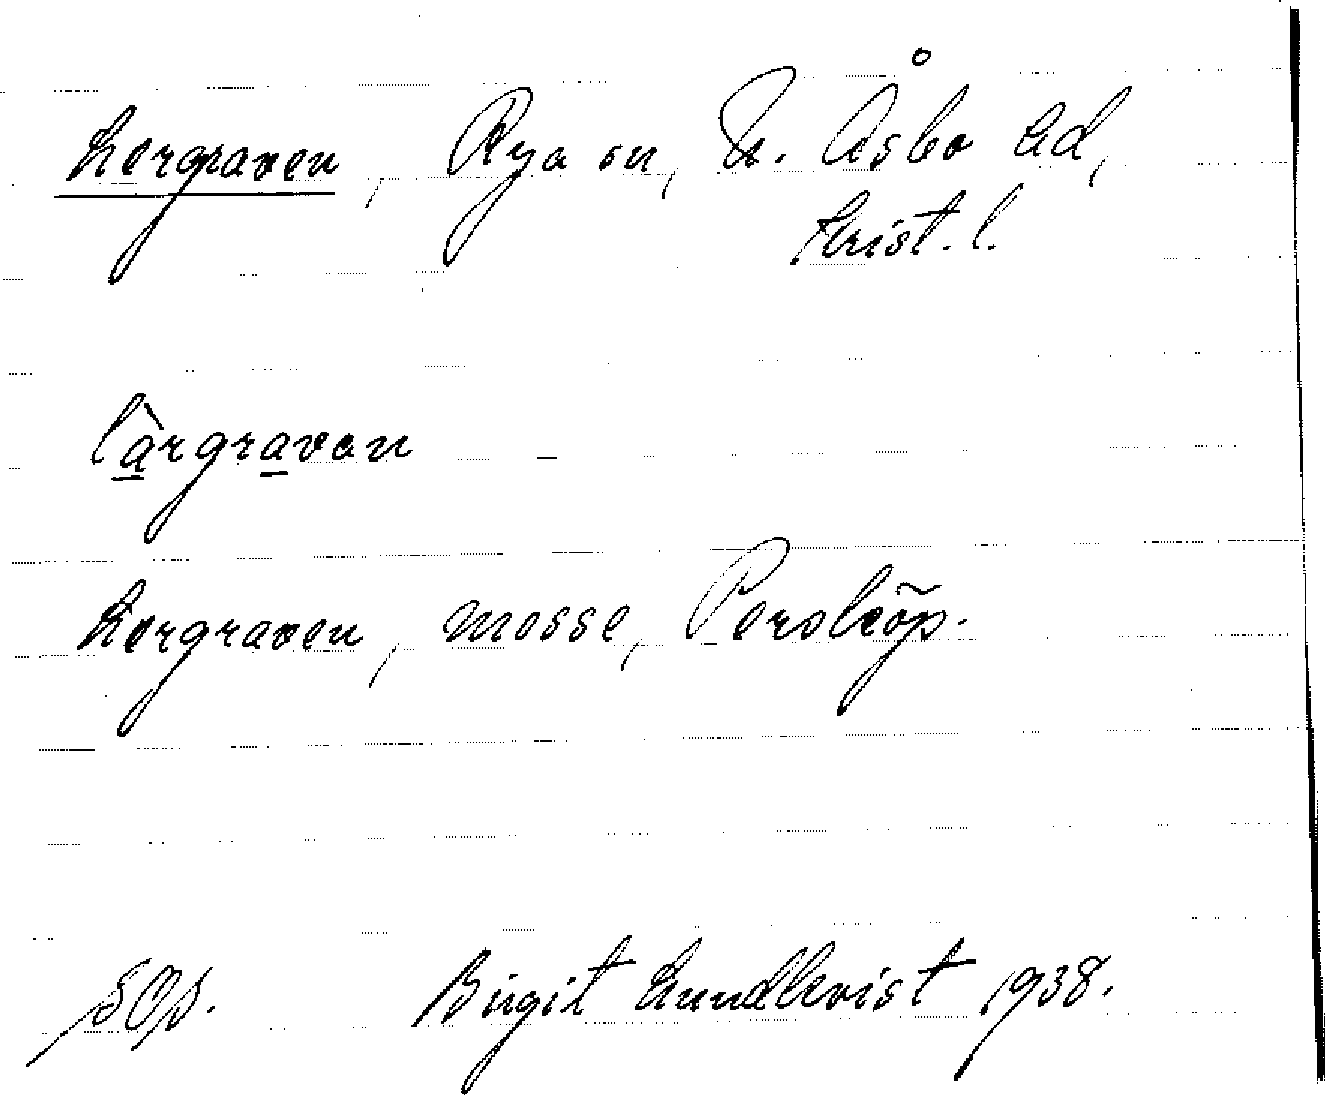 Lergraven, Rya sn, N. Åsbo hd,
Krist. l.
lärgravan
Lergraven, mosse, Perolköp.
Birgit Lundkvist 1938.